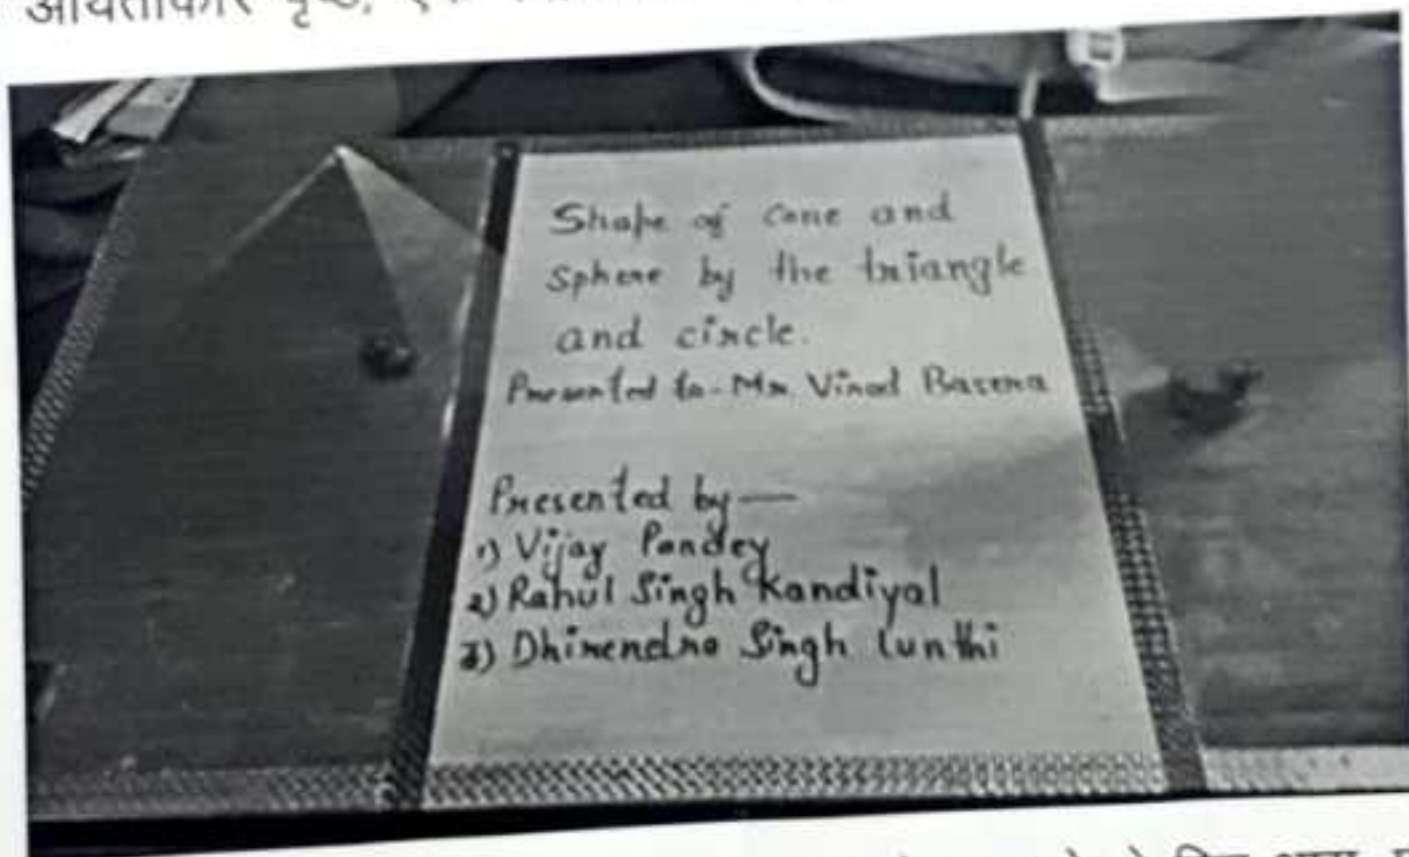 आयताकार पृष्ठ,
Shape of cone and
sphere by the triangle
and circle.
Presented to - Mr. Vinod Basera
Presented by —
1) Vijay Pandey
2) Rahul Singh Kandiyal
3) Dhirendra Singh Lunthi